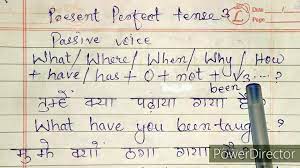 Present Perfect tense
Passive voice
What/Where/When/Why/How
+ have/has + O + not + V3...?
been
तुम्हें क्या पढ़ाया गया है
What have you been taug
मुझे क्यों ठगा गया है
PowerDirector